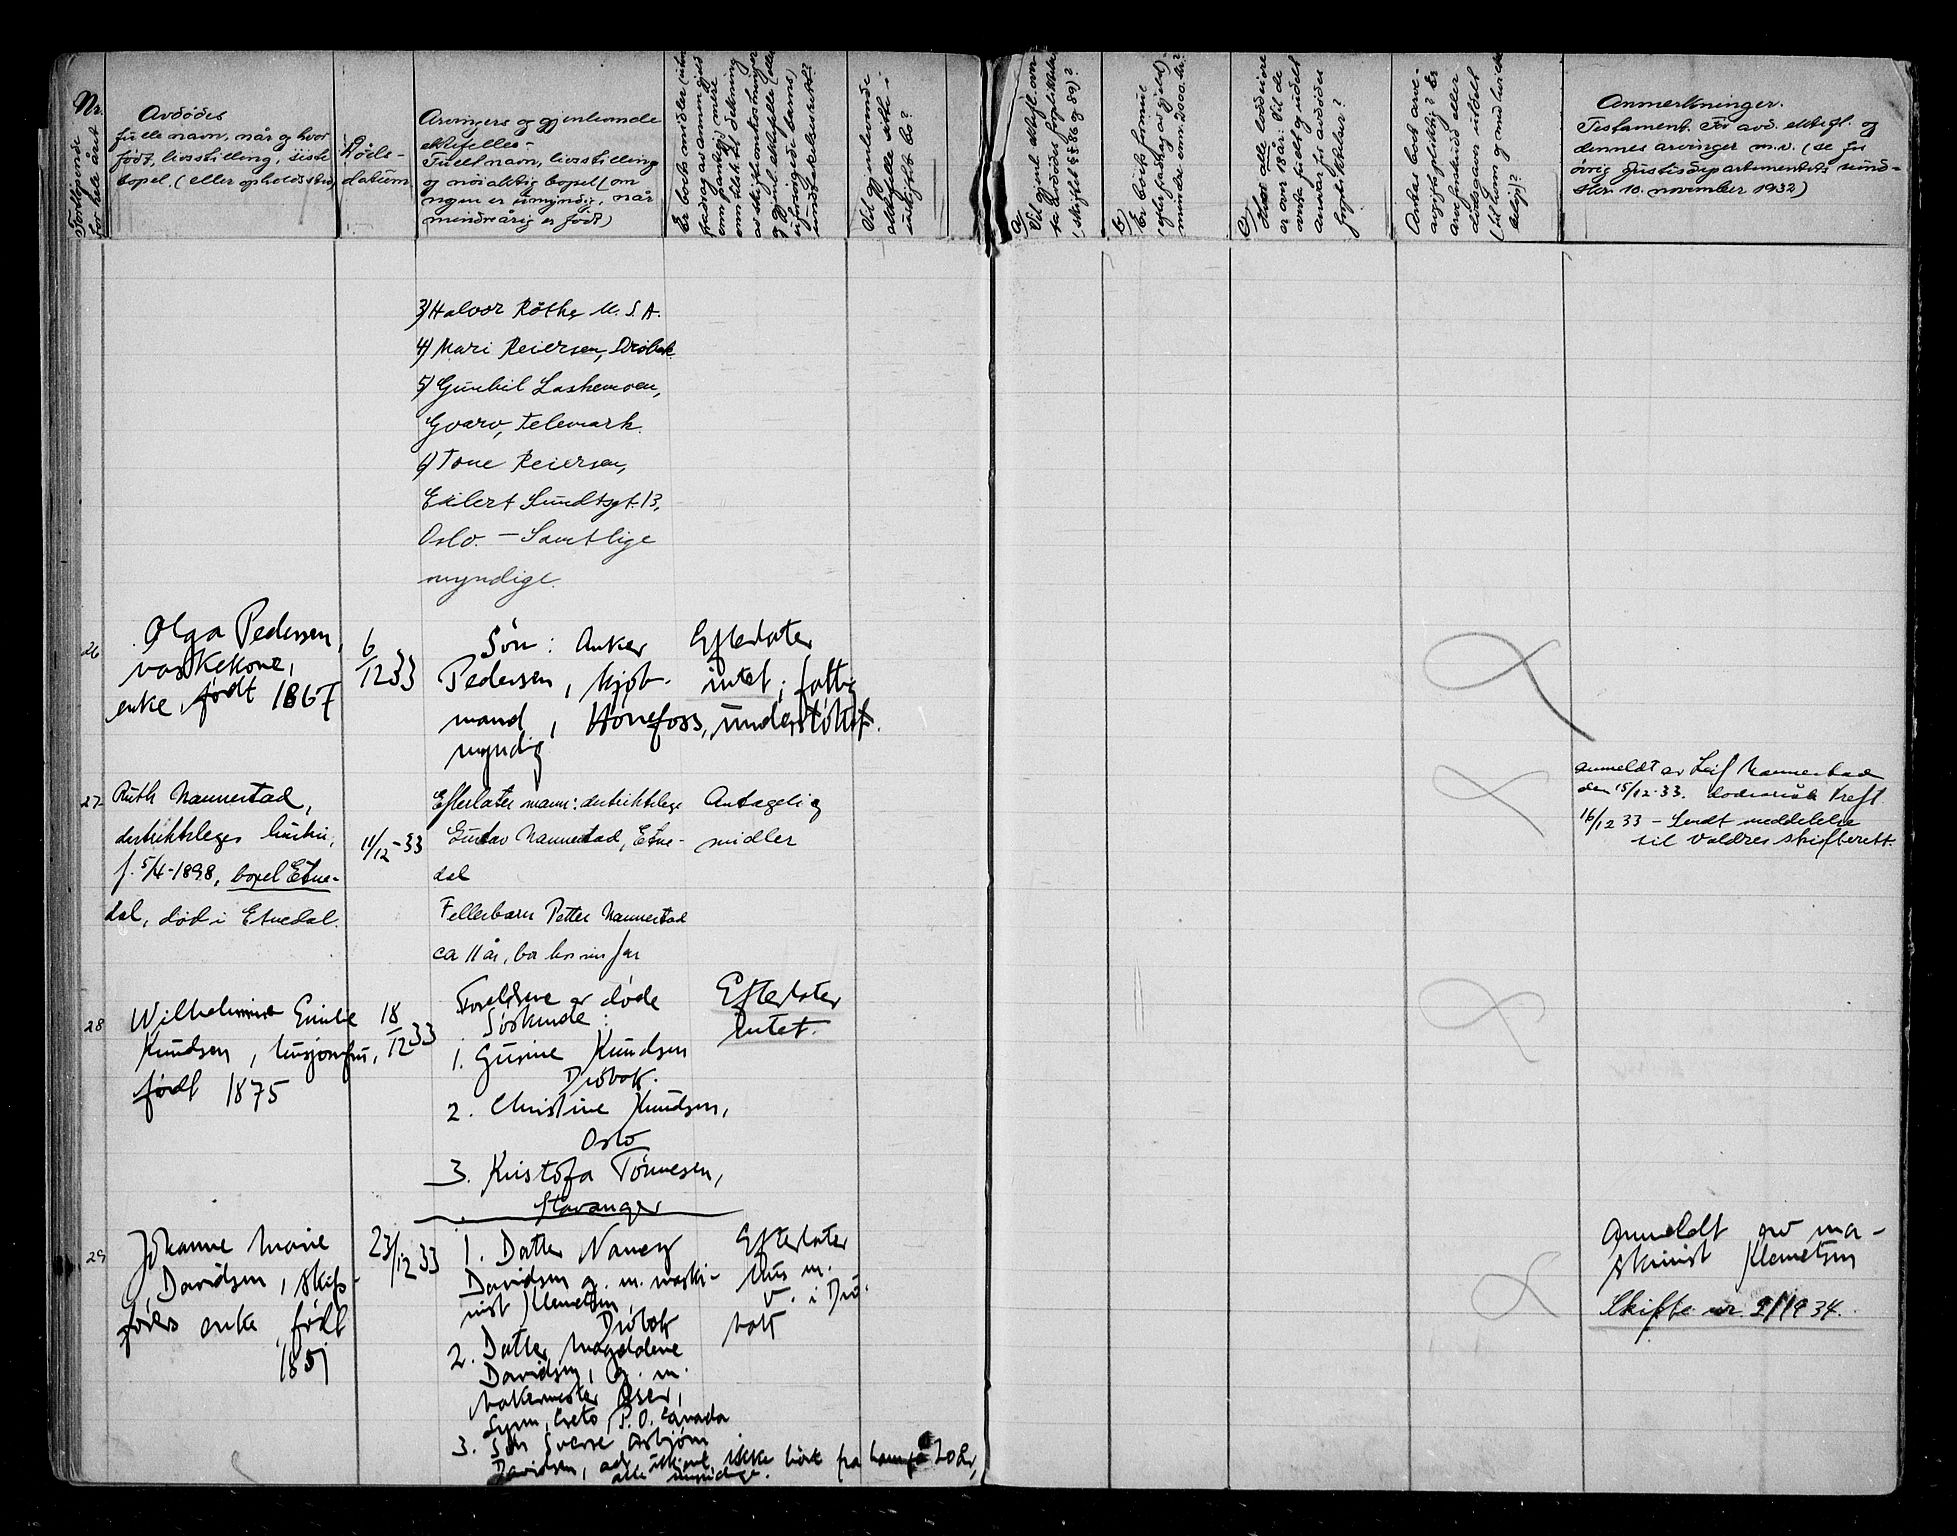 Nr.
Fortløpende
for hele året
Avdødes
fulle navn, når og hvor
født, livsstilling, siste
bopel, (eller opholdssted)
Døds-
datum
Arvingers og gjenlevende
ektefelles
Fullt navn, livsstilling
og nøiaktig bopel (om
ingen er umyndig, når
mindreårig er født)
Er boets midler
Til gjenlevende
ektefelle utle-
uskiftet bo?
a)
(skiftel. §§ 86 og 89)?
b)
Er boets formue
(efter fradrag av gjeld)
mindre enn 2000 kr.?
c)
Har alle loddeiere
er over 18 år: Vil de
ansvar for avdødes
forpliktelser?
Antas boet arve-
avgiftspliktig? Er
arveforskudd eller
dødsgaver utdelt
(til hvem og med hvilke
beløp)?
Anmerkninger.
Testament. For avd. ektef. og
dennes arvinger m.v. (se for
øvrig Justisdepartementets rund-
skr. 10. november 1932)
3) Halvor Röthe U.S.A.
4) Mari Reiersen, Drøbak
5) Gunhil Laskemoen,
Gvarv, Telemark.
6) Tone Reiersen,
Eilert Sundtsgt. 13,
Oslo. — Samtlige
myndige.
26
Olga Pedersen,
vaskekone,
enke, født 1867
6/12 33
Søn: Anker
Pedersen, kjøb-
mand, Hønefoss,
myndig
Efterlater
intet; fattig
understøttet.
27
Ruth Nannestad,
distriktsleges hustru,
f. 5/4-1898, bopel Etne-
dal, død i Etnedal.
11/12-33
Efterlater mann: distriktslege
Gustav Nannestad, Etne-
dal
Fellesbarn Petter Nannestad
ca 11 år, bor hos sin far
Antagelig
midler
anmeldt av Leif Nannestad
den 15/12-33. dødsårsak Kreft
16/12 33 – Sendt meddelelse
til Valdres skifterett.
28
Wilhelmine Emilie
Knudsen, husjomfru,
født 1875
18/12 33
Foreldrene er døde
Søskende:
1. Gusine Knudsen
Drøbak.
2. Christine Knudsen,
Oslo
3. Kristofa Tønnesen,
Stavanger
Efterlater
Intet.
29
Johanne Marie
Davidsen, skibs-
førers enke, født
1851
23/12 33
1. Datter Nancy
Davidsen g. m. maski-
nist Klemetsen,
Drøbak
2. Datter Magdalene
Davidsen, g. m.
bakermester Oser,
P.O. Canada
3. Søn Sverre Asbjørn
Davidsen, ikke hørt fra 20 år,
alle myndige.
Efterlater
hus m.
v. i Drø-
bak
Anmeldt av ma-
skinist Klemetsen
Skifte nr. 2/1934.